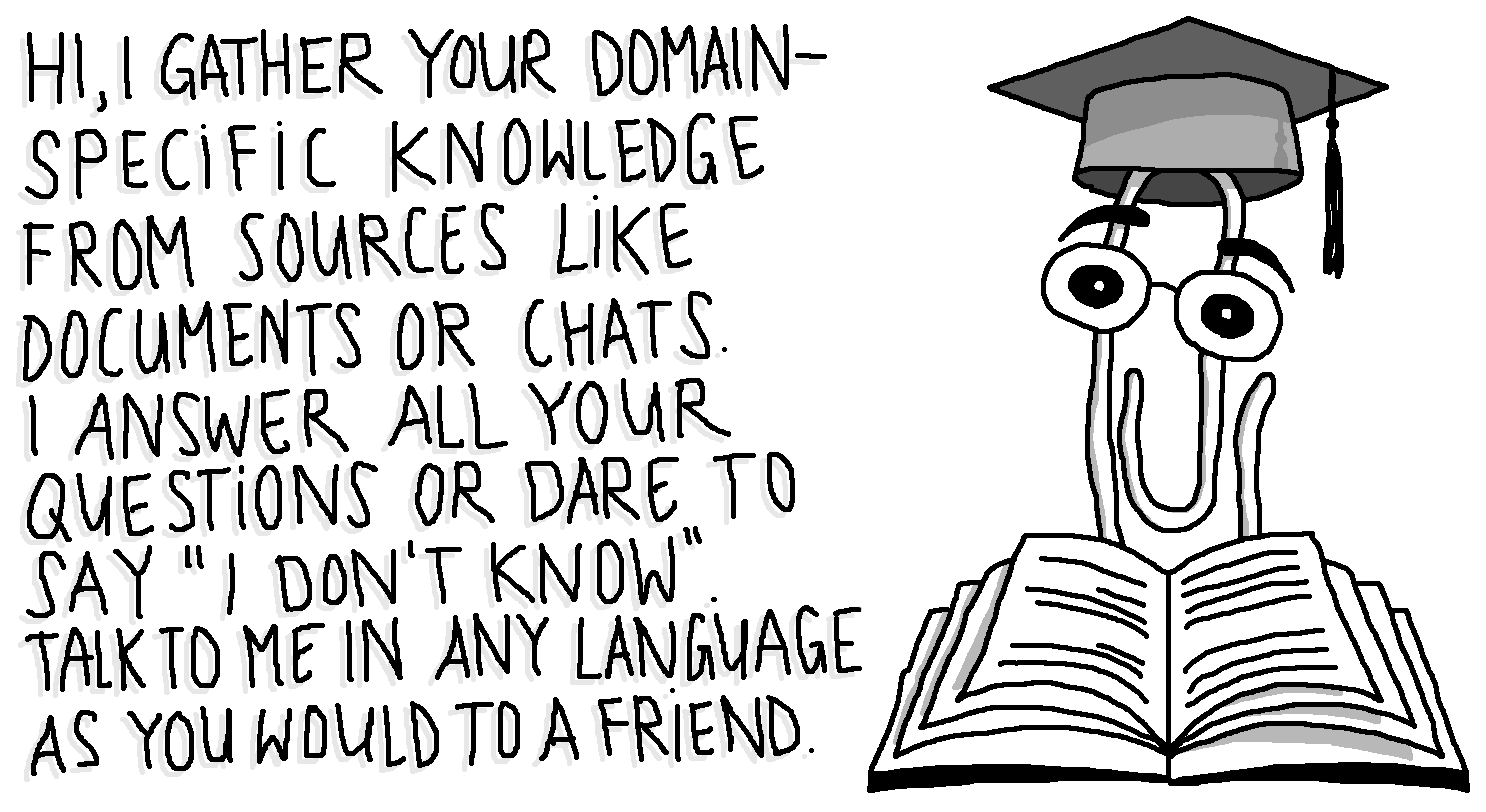 HI, I GATHER YOUR DOMAIN-
SPECIFIC KNOWLEDGE
FROM SOURCES LIKE
DOCUMENTS OR CHATS.
I ANSWER ALL YOUR
QUESTIONS OR DARE TO
SAY "I DON'T KNOW".
TALK TO ME IN ANY LANGUAGE
AS YOU WOULD TO A FRIEND.